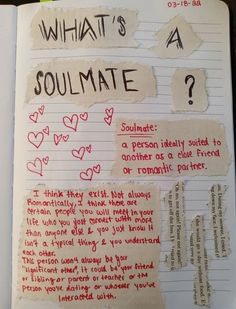 03-18-22
WHAT'S A
SOULMATE ?
Soulmate:
a person ideally suited to
another as a close friend
or romantic partner.
I think they exist. Not always
Romantically, I think there are
certain people you will meet in your
life who you just connect with more
than anyone else & you just know it
isn't a typical thing & you understand
each other.
This person won't always be your
"significant other", it could be your friend
or sibling or parent or teacher or the
person you're dating or whoever you've
interacted with.